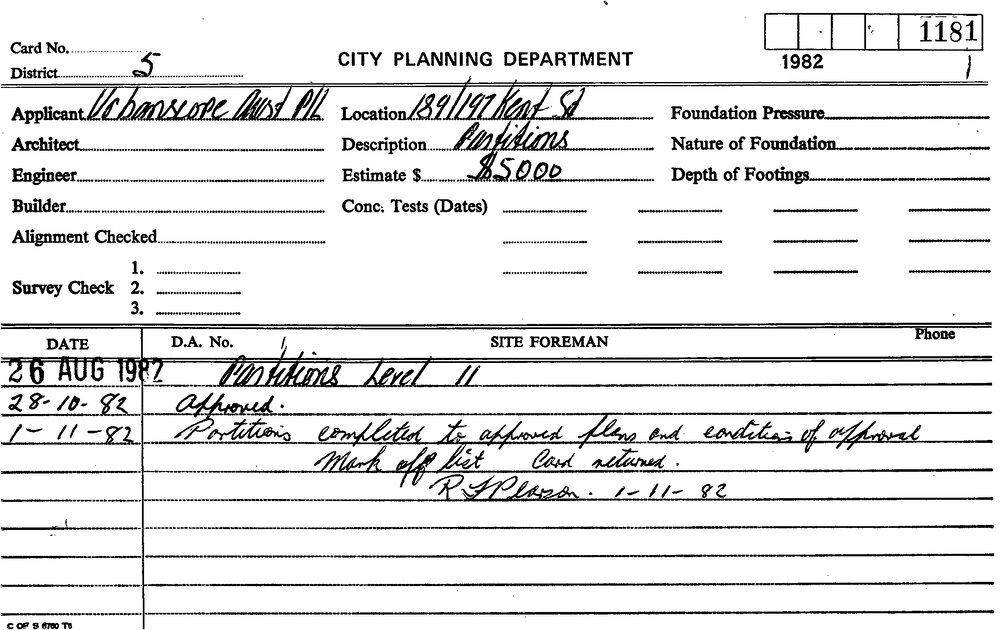 1181
Card No.
CITY PLANNING DEPARTMENT
1982
District 5
Applicant Urbanscope Aust P/L Location 189/197 Kent St Foundation Pressure
Architect Description Partitions Nature of Foundation
Engineer Estimate $ $5000 Depth of Footings
Builder Conc. Tests (Dates)
Alignment Checked
1.
Survey Check 2.
3.
DATE D.A. No. SITE FOREMAN Phone
26 AUG 1982 Partitions Level 11
28-10-82 Approved.
1-11-82 Partitions completed to approved plans and conditions of approval
Mark off list Card returned.
R F Pearson. 1-11-82
C OF S 6760 T6